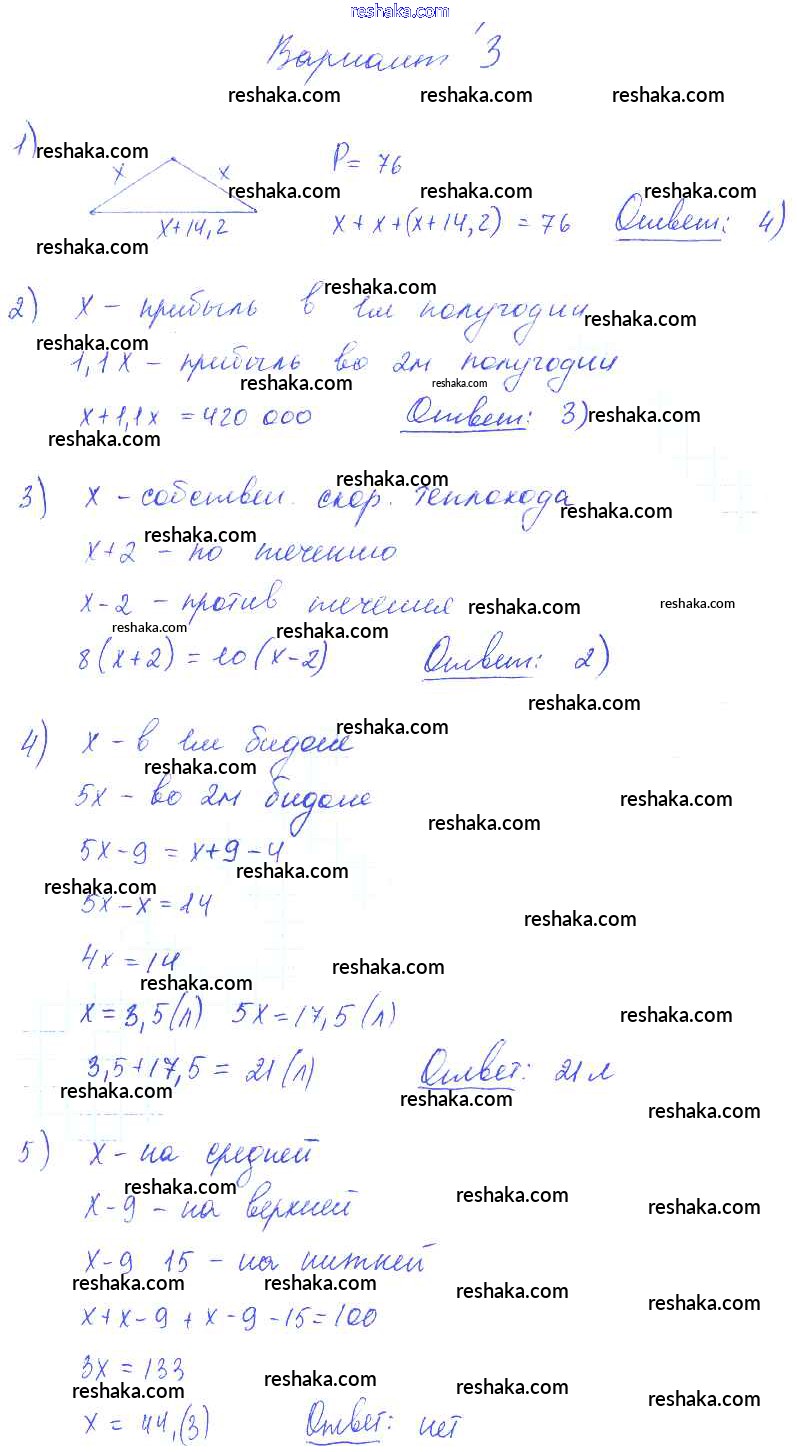 reshaka.com
Вариант 3
reshaka.com reshaka.com reshaka.com
1) reshaka.com
x x P = 76
reshaka.com reshaka.com reshaka.com
x+14,2 x + x + (x+14,2) = 76 Ответ: 4)
reshaka.com
reshaka.com
2) x – прибыль в 1м полугодии
reshaka.com
reshaka.com
1,1x – прибыль во 2м полугодии
reshaka.com reshaka.com
x+1,1x = 420 000 Ответ: 3) reshaka.com
reshaka.com
reshaka.com
3) x – собствен. скор. теплохода
reshaka.com
reshaka.com
x+2 – по течению
x-2 – против течения reshaka.com reshaka.com
reshaka.com reshaka.com
8(x+2) = 10(x-2) Ответ: 2)
reshaka.com
reshaka.com
4) x – в 1м бидоне
reshaka.com
5x – во 2м бидоне reshaka.com
reshaka.com
5x-9 = x+9-4
reshaka.com
reshaka.com
5x-x=14
reshaka.com
4x=14
reshaka.com
reshaka.com
x=3,5(л) 5x=17,5(л) reshaka.com
3,5+17,5 = 21(л) Ответ: 21л
reshaka.com reshaka.com
reshaka.com
5) x – на средней
reshaka.com reshaka.com
x-9 – на верхней reshaka.com
x-9 15 – на нижней
reshaka.com reshaka.com reshaka.com
reshaka.com
x+x-9+x-9-15=100
3x=133
reshaka.com reshaka.com reshaka.com
reshaka.com
x = 44,(3) Ответ: нет